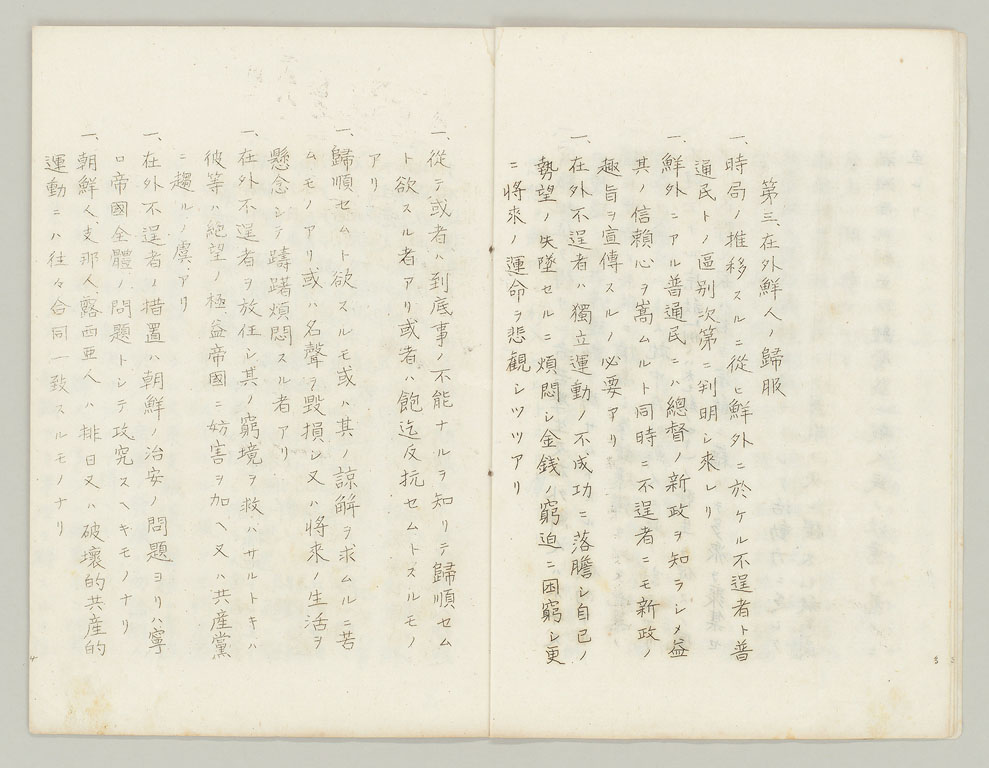 第三、在外鮮人ノ歸服
一、時局ノ推移スルニ從ヒ鮮外ニ於ケル不逞者ト普
通民トノ區別次第ニ判明シ來レリ
一、鮮外ニアル普通民ニハ總督ノ新政ヲ知ラシメ益
其ノ信賴心ヲ嵩ムルト同時ニ不逞者ニモ新政ノ
趣旨ヲ宣傳スルノ必要アリ
一、在外不逞者ハ獨立運動ノ不成功ニ落膽シ自己ノ
勢望ノ失墜セルニ煩悶シ金錢ノ窮迫ニ困窮シ更
ニ將來ノ運命ヲ悲觀シツツアリ
一、從テ或者ハ到底事ノ不能ナルヲ知リテ歸順セム
ト欲スル者アリ或者ハ飽迄反抗セムトスルモノ
アリ
一、歸順セムト欲スルモ或ハ其ノ諒解ヲ求ムルニ苦
ムモノアリ或ハ名聲ヲ毀損シ又ハ將來ノ生活ヲ
懸念シテ躊躇煩悶スル者アリ
一、在外不逞者ヲ放任シ其ノ窮境ヲ救ハサルトキハ
彼等ハ絕望ノ極益帝國ニ妨害ヲ加ヘ又ハ共産黨
ニ趨ルノ虞アリ
一、在外不逞者ノ措置ハ朝鮮ノ治安ノ問題ヨリハ寧
ロ帝國全體ノ問題トシテ攻究スヘキモノナリ
一、朝鮮人支那人露西亞人ハ排日又ハ破壞的共産的
運動ニハ往々合同一致スルモノナリ